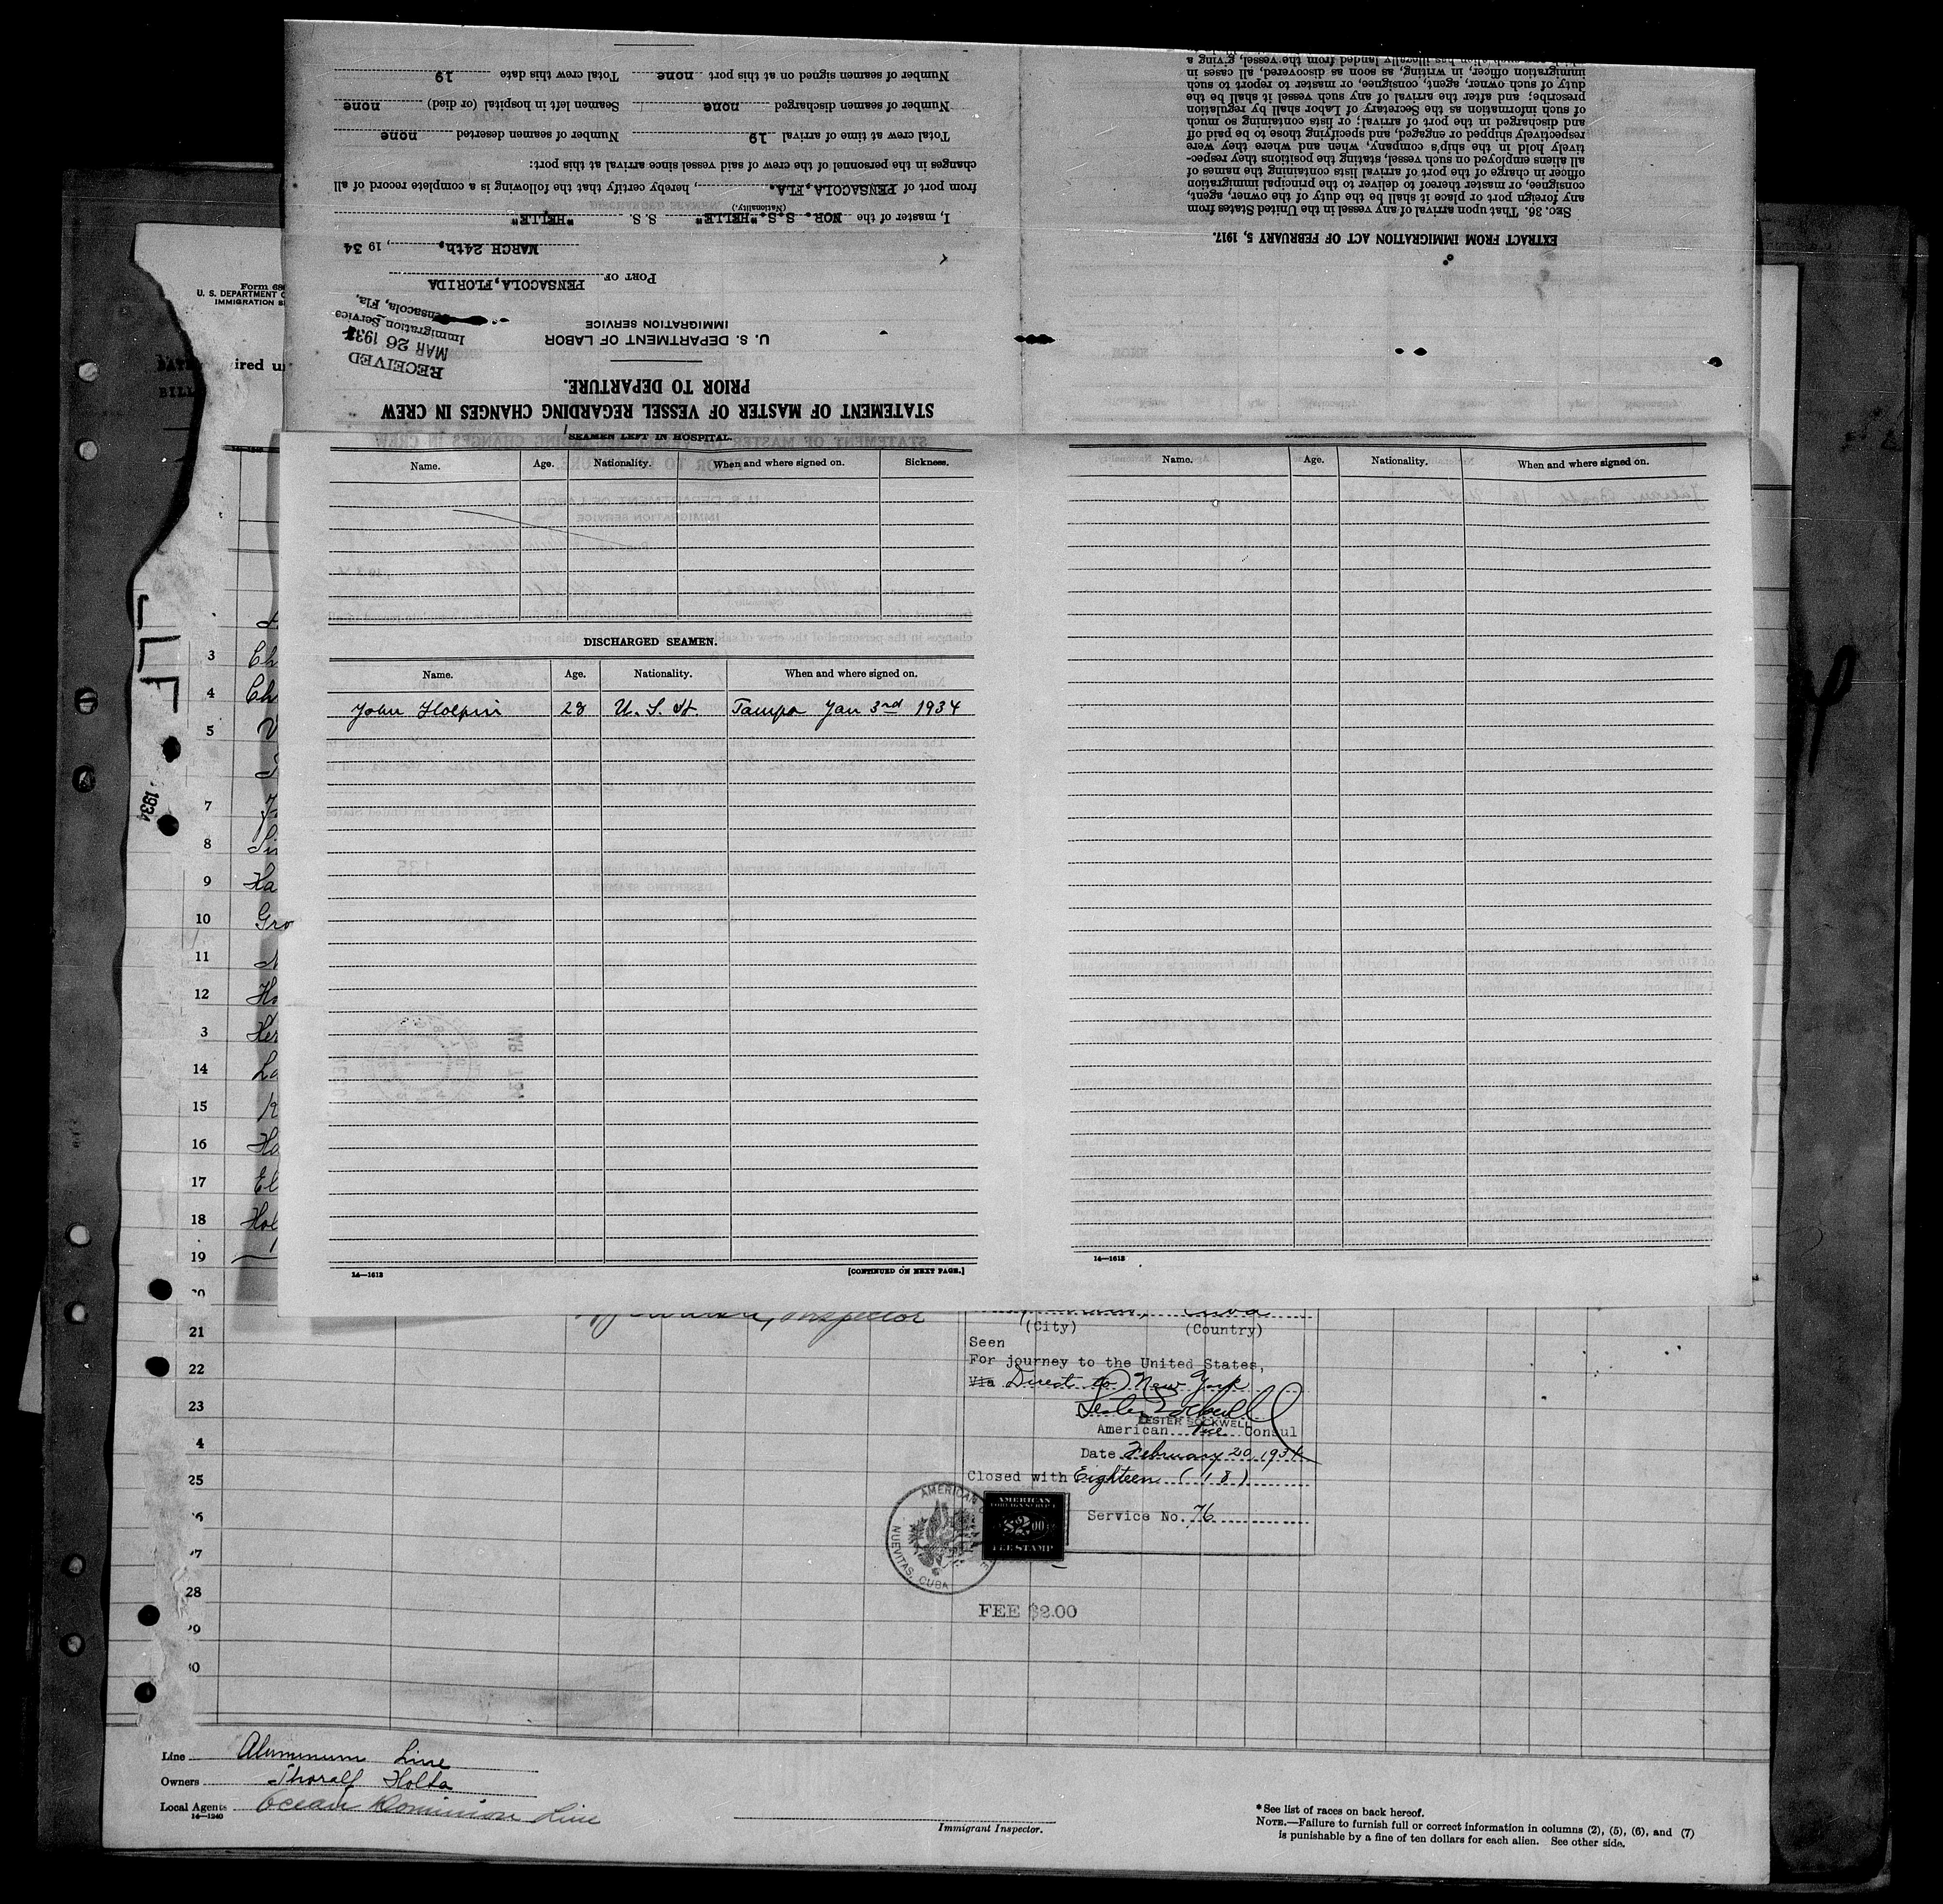 STATEMENT OF MASTER OF VESSEL REGARDING CHANGES IN CREW
PRIOR TO DEPARTURE.
U. S. DEPARTMENT OF LABOR
IMMIGRATION SERVICE
RECEIVED
MAR 26 1934
Immigration Service
Pensacola, Fla.
PORT OF PENSACOLA, FLORIDA
MARCH 24th, 19 34
I, master of the NOR. S.S. "HELLE" S. S. "HELLE"
(Nationality.)
from port of PENSACOLA, FLA. , hereby certify that the following is a complete record of all
changes in the personnel of the crew of said vessel since arrival at this port:
Total crew at time of arrival 19 Number of seamen deserted none
Number of seamen discharged none Seamen left in hospital (or died) none
Number of seamen signed on at this port none Total crew this date 19
EXTRACT FROM IMMIGRATION ACT OF FEBRUARY 5, 1917.
SEC. 36. That upon arrival of any vessel in the United States from
any foreign port or place it shall be the duty of the owner, agent,
consignee, or master thereof to deliver to the principal immigration
officer in charge of the port of arrival lists containing the names of
all aliens employed on such vessel, stating the positions they respec-
tively hold in the ship's company, when and where they were
respectively shipped or engaged, and specifying those to be paid off
and discharged in the port of arrival; or lists containing so much
of such information as the Secretary of Labor shall by regulation
prescribe; and after the arrival of any such vessel it shall be the
duty of such owner, agent, consignee, or master to report to such
immigration officer, in writing, as soon as discovered, all cases in
which any such alien has illegally landed from the vessel, giving a
Form 68
U. S. DEPARTMENT O
IMMIGRATION S
ired u
BILL
SEAMEN LEFT IN HOSPITAL.
Name. Age. Nationality. When and where signed on. Sickness.
DISCHARGED SEAMEN.
Name. Age. Nationality. When and where signed on.
John Holpin 28 U. S. A. Tampa Jan 3rd 1934
14—1612
[CONTINUED ON NEXT PAGE.]
Name. Age. Nationality. When and where signed on.
14—1612
1934
3 Ch
4 Ch
5 V
7
8 Si
9 Ha
10 Gro
11
12 Ho
3 Her
14 La
15
16 Ha
17 El
18 Hol
19
20
21
22
23
4
25
26
27
28
29
30
Inspector
Cuba
(City) (Country)
Seen
For journey to the United States,
Via Direct to New York
LESTER SOCKWELL
American Vice Consul
Date February 20, 1934
Closed with Eighteen (18)
Service No. 76
AMERICAN
NUEVITAS, CUBA
AMERICAN
FOREIGN SERVICE
$2.00
FEE STAMP
FEE $2.00
Line Aluminum Line
Owners Thoralf Holta
Local Agents Ocean Dominion Line
14—1240
Immigrant Inspector.
*See list of races on back hereof.
NOTE.—Failure to furnish full or correct information in columns (2), (5), (6), and (7)
is punishable by a fine of ten dollars for each alien. See other side.